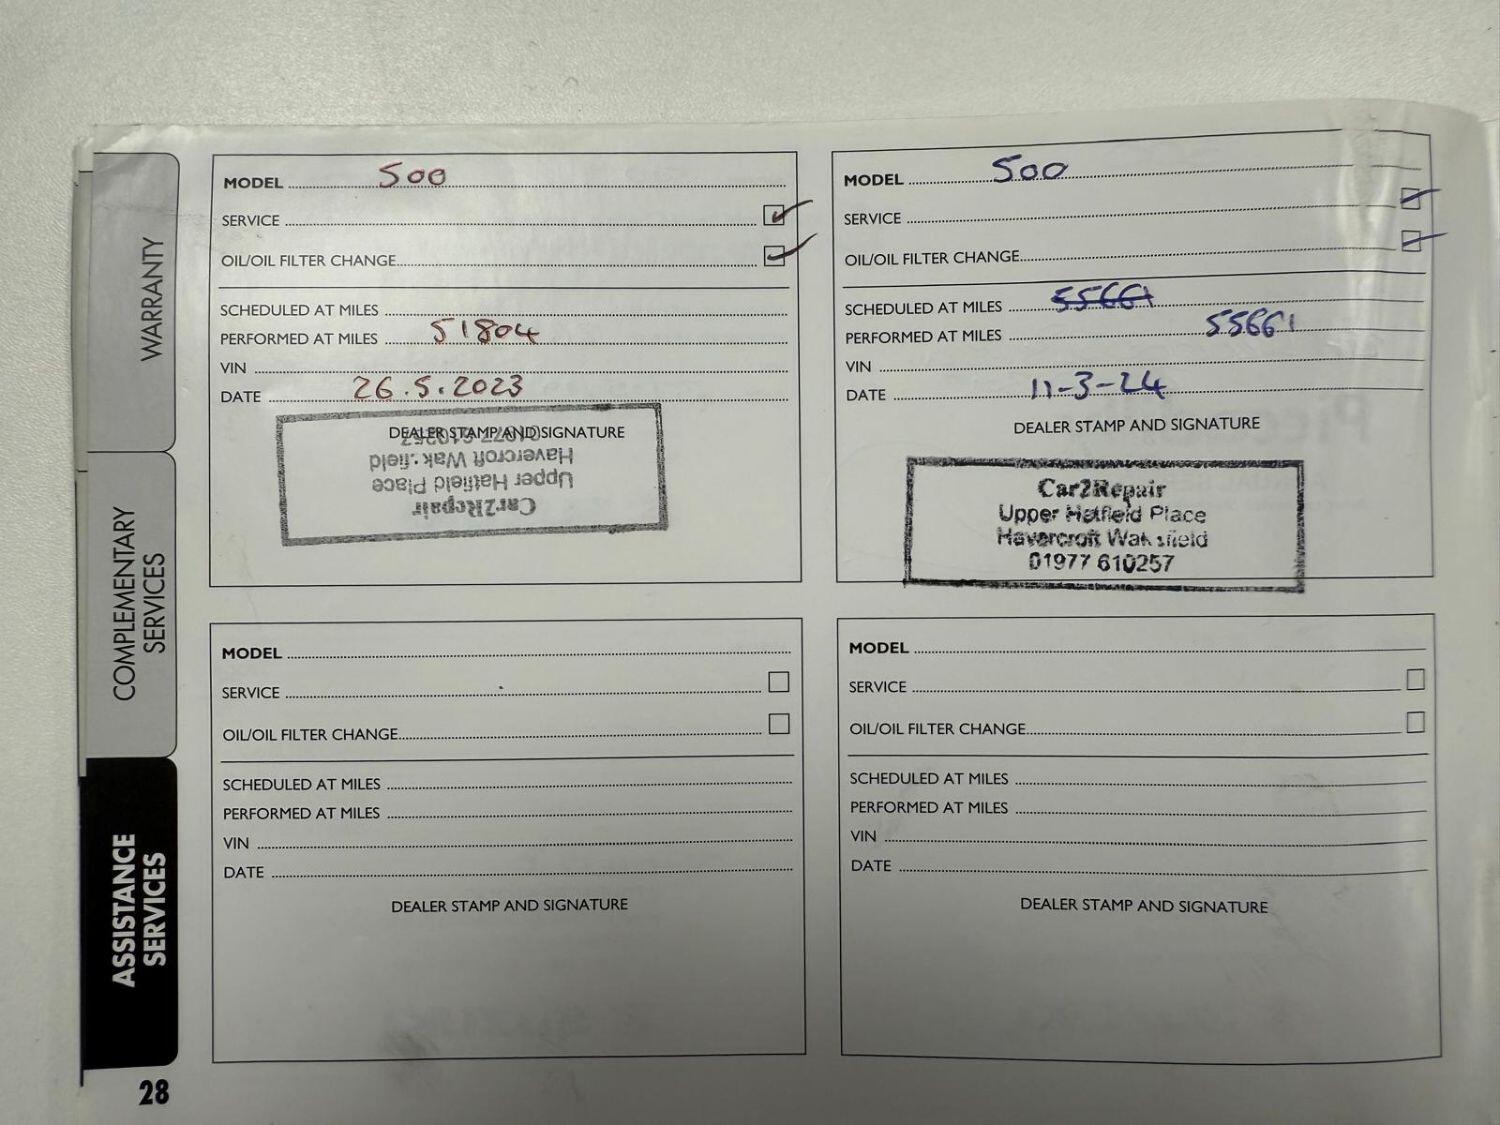 WARRANTY
COMPLEMENTARY
SERVICES
ASSISTANCE
SERVICES
MODEL 500
SERVICE
OIL/OIL FILTER CHANGE
SCHEDULED AT MILES
PERFORMED AT MILES 51804
VIN
DATE 26.5.2023
DEALER STAMP AND SIGNATURE
Car2Repair
Upper Hatfield Place
Havercroft Wakefield
01977 610257
MODEL 500
SERVICE
OIL/OIL FILTER CHANGE
SCHEDULED AT MILES 55661
PERFORMED AT MILES 55661
VIN
DATE 11-3-24
DEALER STAMP AND SIGNATURE
Car2Repair
Upper Hatfield Place
Havercroft Wakefield
01977 610257
MODEL
SERVICE
OIL/OIL FILTER CHANGE
SCHEDULED AT MILES
PERFORMED AT MILES
VIN
DATE
DEALER STAMP AND SIGNATURE
MODEL
SERVICE
OIL/OIL FILTER CHANGE
SCHEDULED AT MILES
PERFORMED AT MILES
VIN
DATE
DEALER STAMP AND SIGNATURE
28